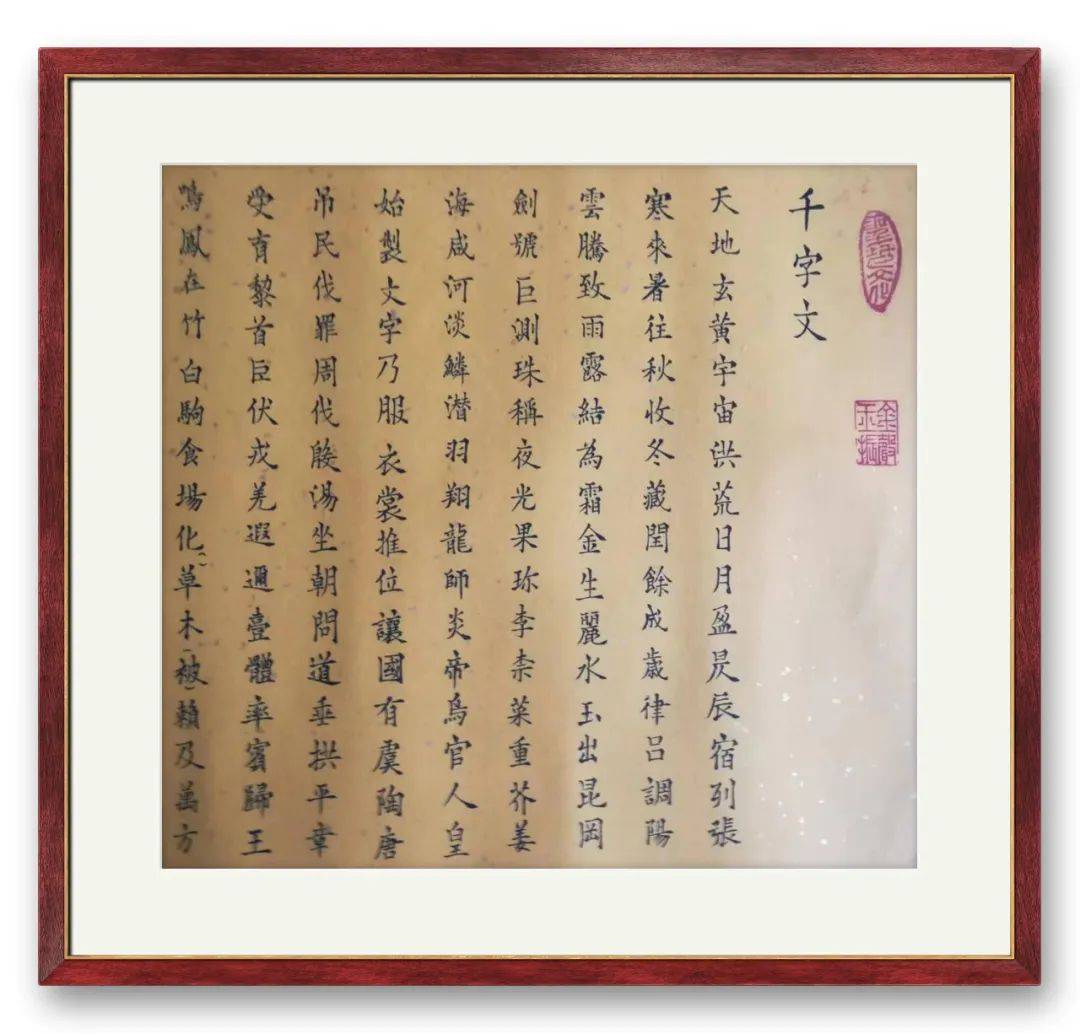 金聲玉振
千字文
天地玄黃宇宙洪荒日月盈昃辰宿列張
寒來暑往秋收冬藏閏餘成歲律呂調陽
雲騰致雨露結為霜金生麗水玉出昆岡
劍號巨測珠稱夜光果珎李柰菜重芥姜
海咸河淡鱗潛羽翔龍師炎帝鳥官人皇
始製文字乃服衣裳推位讓國有虞陶唐
吊民伐罪周伐殷湯坐朝問道垂拱平章
愛育黎首臣伏戎羌遐邇壹體率賓歸王
鳴鳳在竹白駒食場化草木被賴及萬方